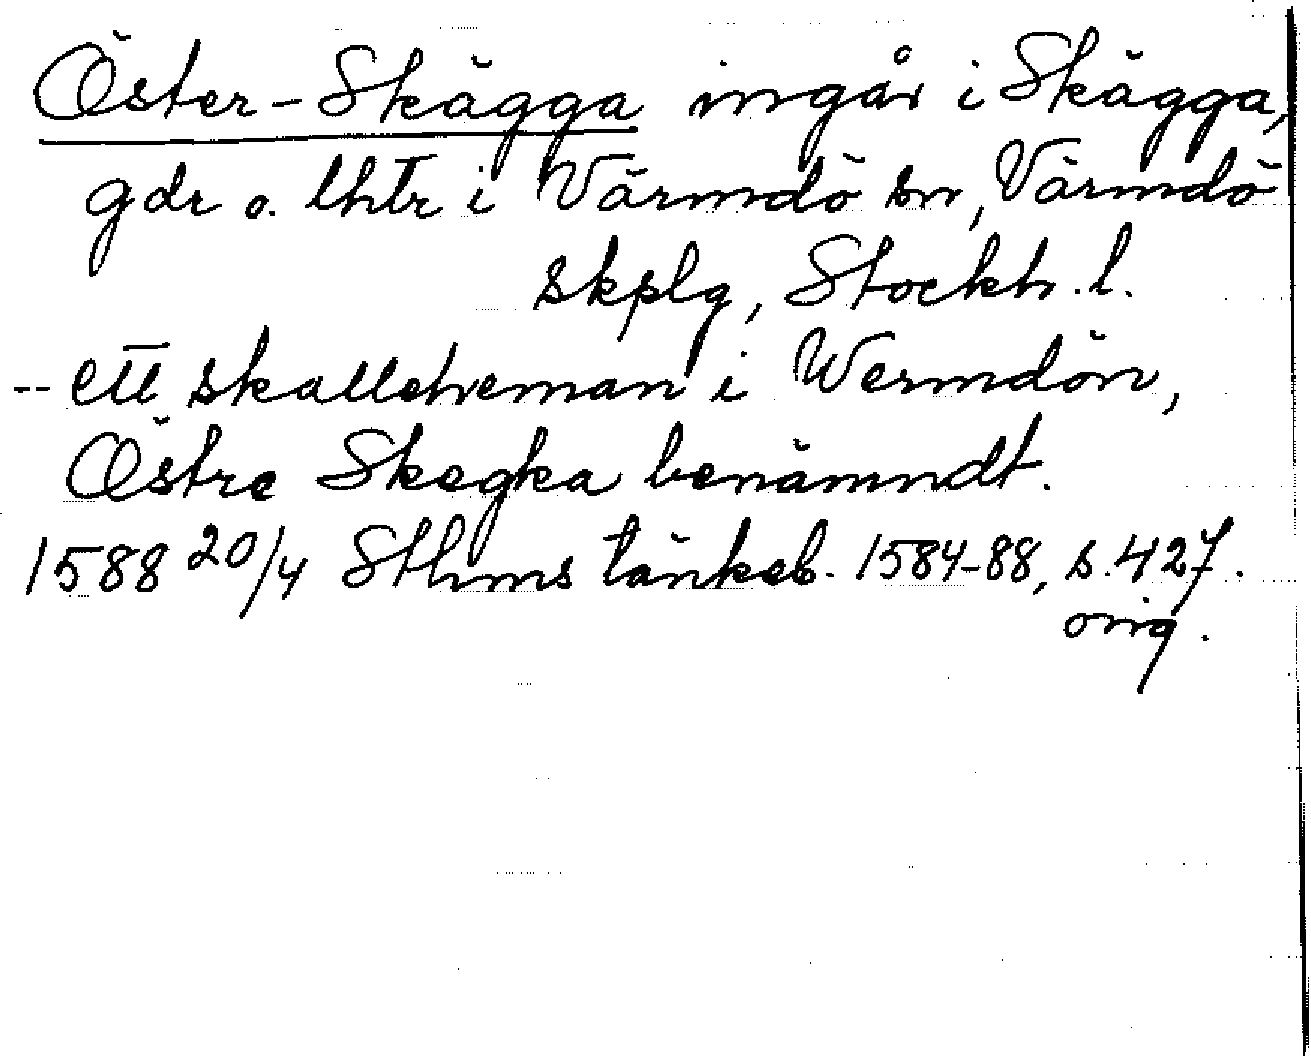 Öster-Skägga ingår i Skägga,
gdr o. lhtr i Värmdö sn, Värmdö
skplg, Stockh. l.
-- ett skatteheman i Wermdön,
Östre Skegka benämndt.
1588 20/4 Sthms tänkeb. 1584-88, s. 427.
orig.